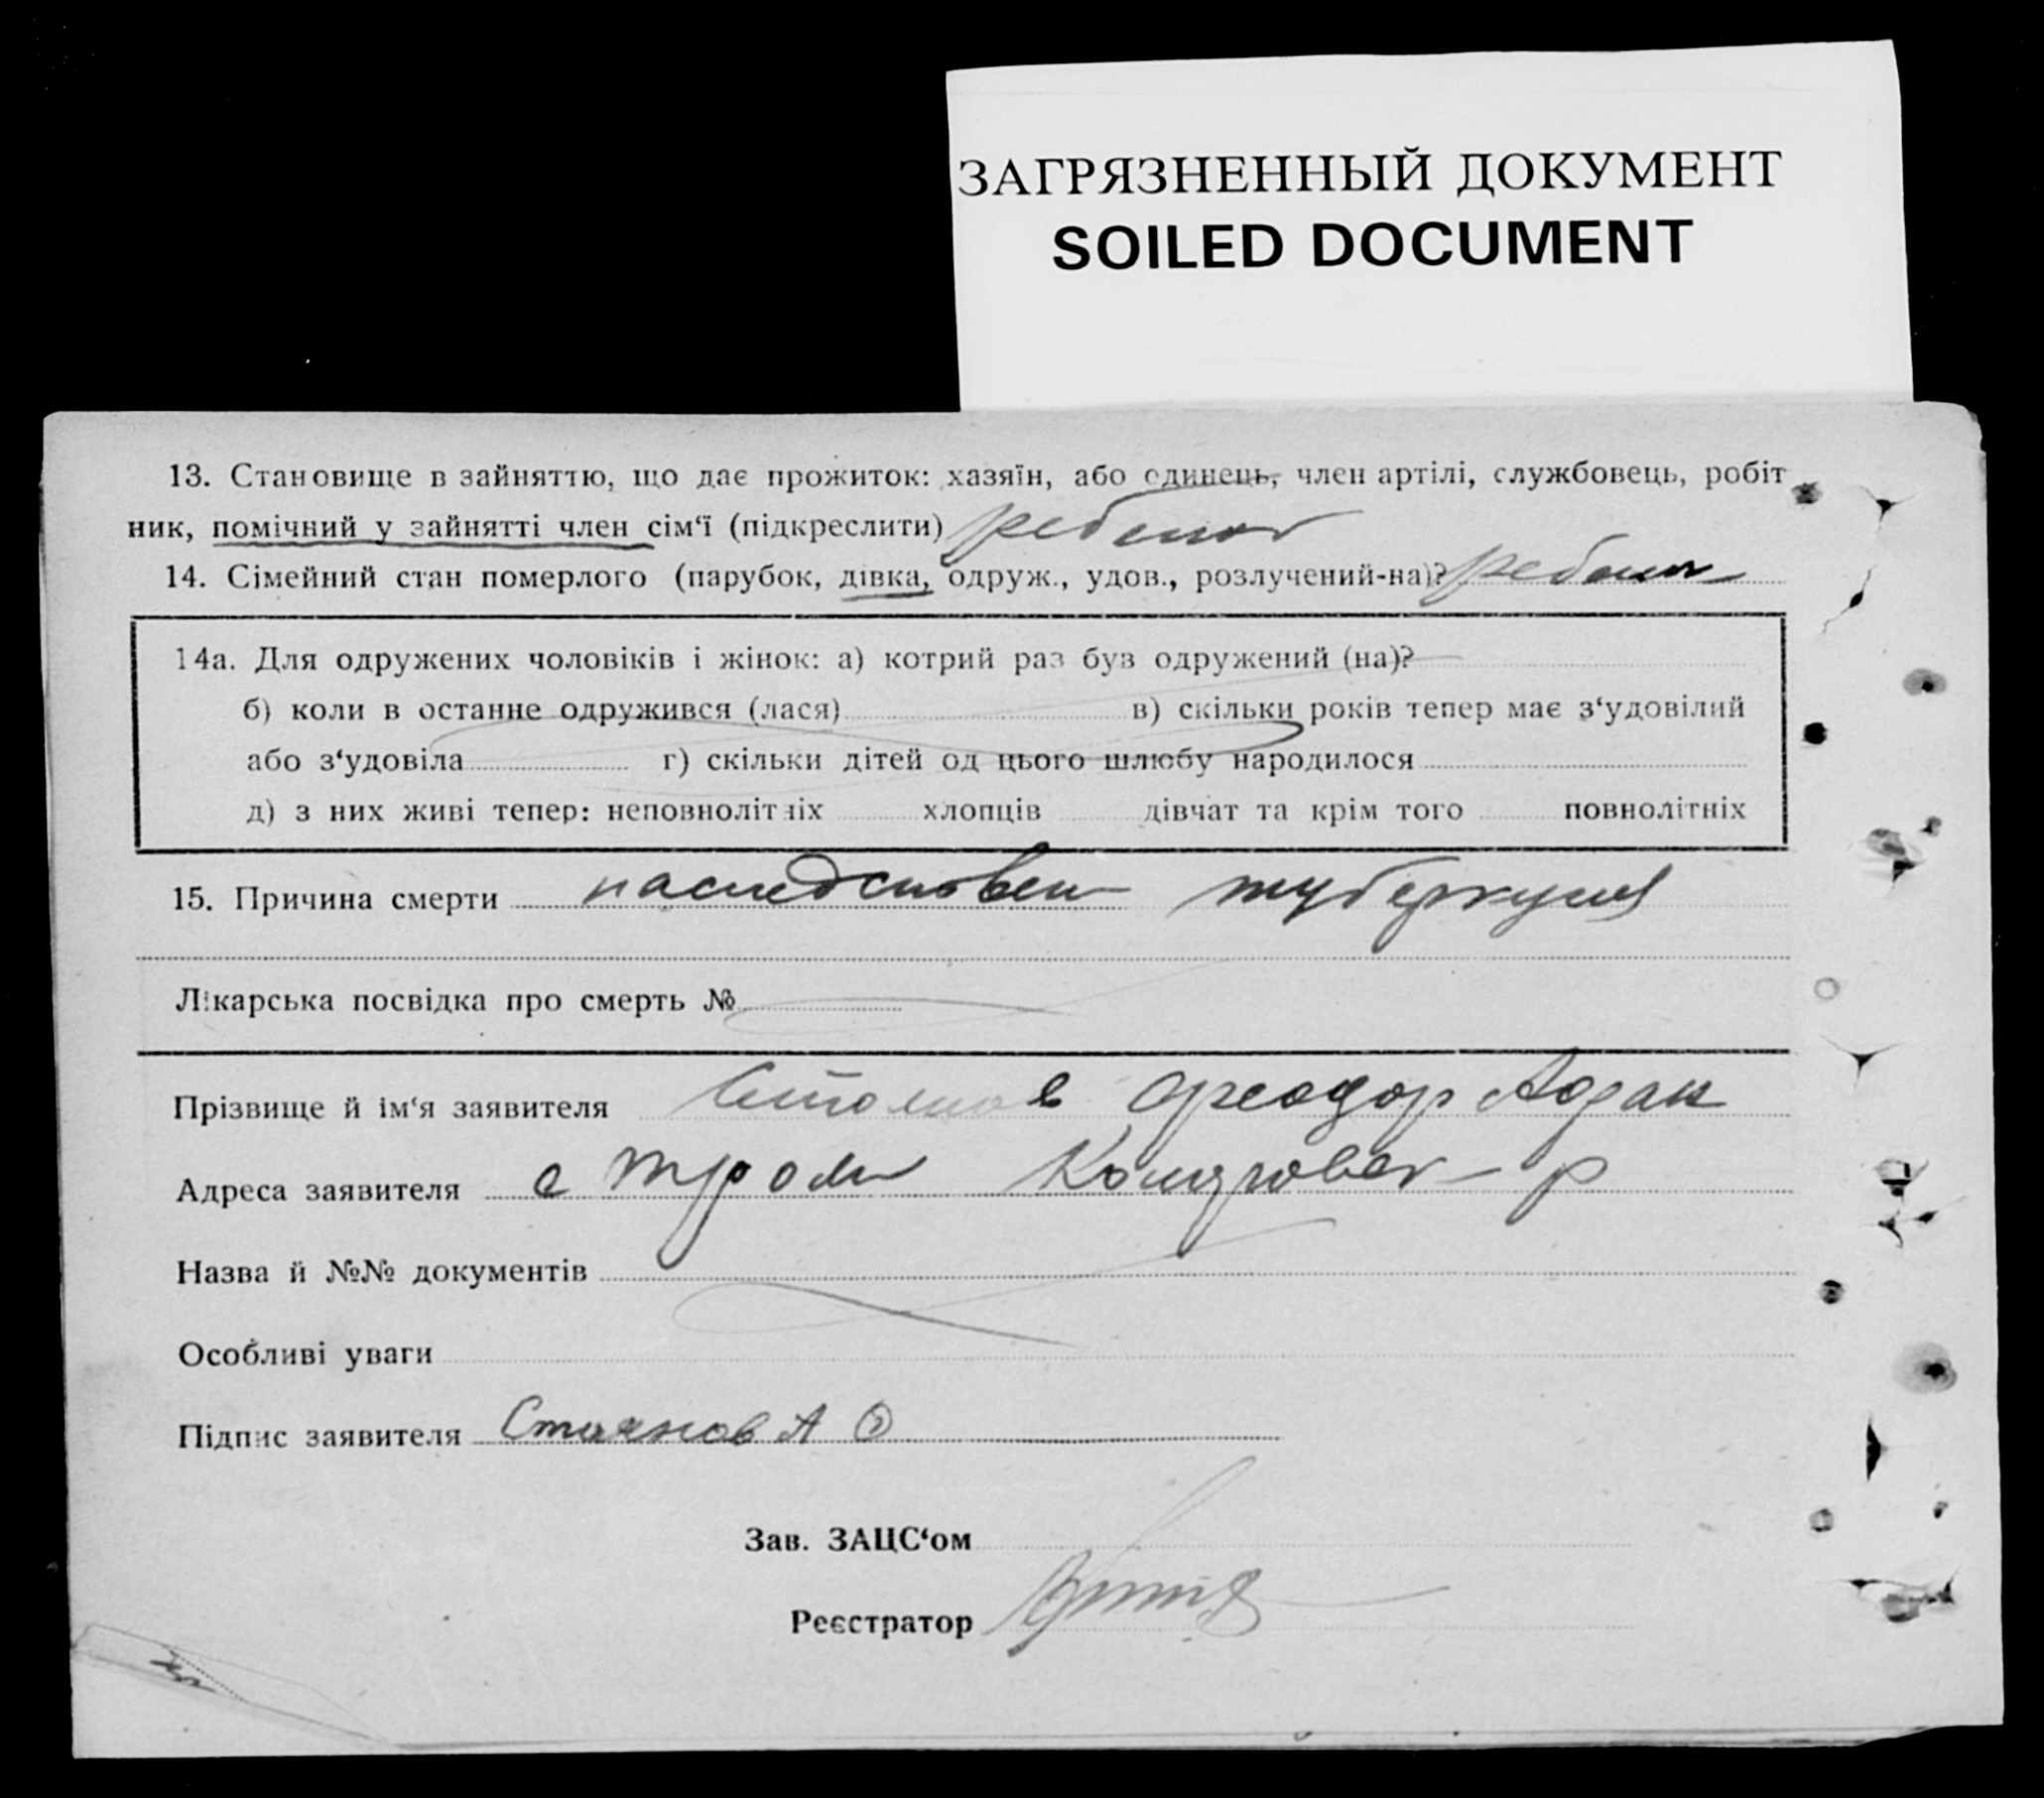 ЗАГРЯЗНЕННЫЙ ДОКУМЕНТ
SOILED DOCUMENT
13. Становище в зайняттю, що дає прожиток: хазяїн, або одинець, член артілі, службовець, робіт
ник, помічний у зайнятті член сім‘ї (підкреслити) ребенок
14. Сімейний стан померлого (парубок, дівка, одруж., удов., розлучений-на)? ребенок
14а. Для одружених чоловіків і жінок: а) котрий раз був одружений (на)?
б) коли в останне одружився (лася) в) скільки років тепер має з‘удовілий
або з‘удовіла г) скільки дітей од цього шлюбу народилося
д) з них живі тепер: неповнолітніх хлопців дівчат та крім того повнолітніх
15. Причина смерти наследствен туберкулез
Лікарська посвідка про смерть №
Прізвище й ім‘я заявителя Стоянов Феодор
Адреса заявителя с Троян р
Назва й №№ документів
Особливі уваги
Підпис заявителя Стоянов А
Зав. ЗАЦС‘ом
Реєстратор